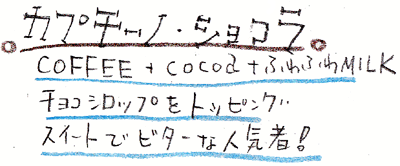 カプチーノ・ショコラ。
COFFEE + COCOA + ふわふわMILK
チョコシロップをトッピング
スイートでビターな人気者!